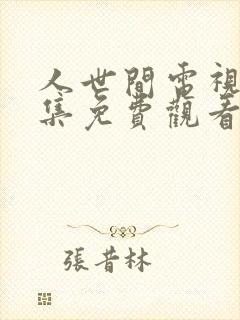 人世間電視
集免費觀看
張昔林